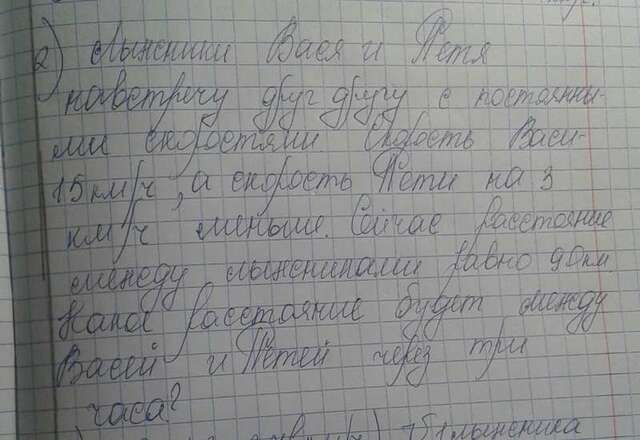 2) Лыжники Вася и Петя
навстречу друг другу с постоянны-
ми скоростями Скорость Васи-
15 км/ч, а скорость Пети на 3
км/ч меньше. Сейчас расстояние
между лыжниками равно 90 км.
Какое расстояние будет между
Васей и Петей через три
часа?
лыжника